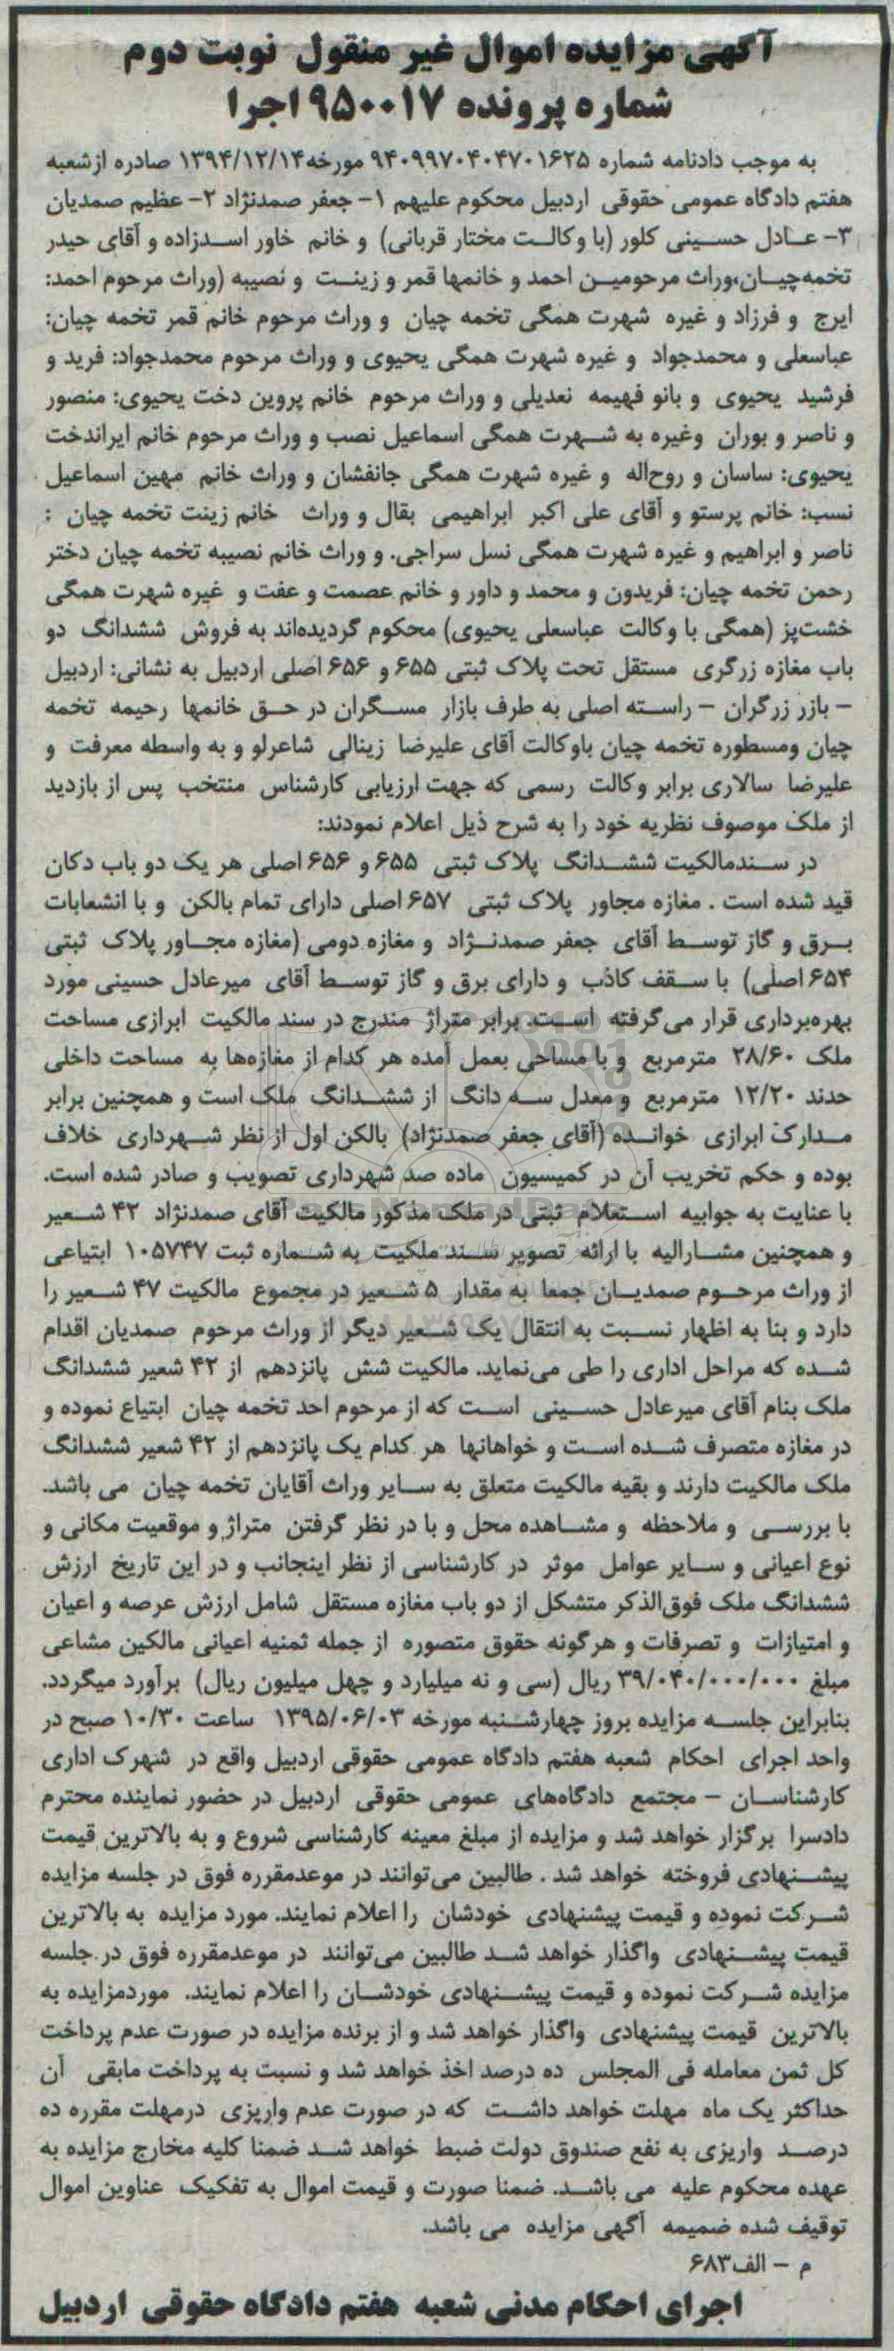 آگهی مزایده اموال غیر منقول نوبت دوم
شماره پرونده ۹۵۰۰۱۷ اجرا
به موجب دادنامه شماره ۹۴۰۹۹۷۰۴۰۴۷۰۱۶۲۵ مورخه ۱۳۹۴/۱۲/۱۴ صادره از شعبه
هفتم دادگاه عمومی حقوقی اردبیل محکوم علیهم ۱- جعفر صمدنژاد ۲- عظیم صمدیان
۳- عادل حسینی کلور (با وکالت مختار قربانی) و خانم خاور اسدزاده و آقای حیدر
تخمه‌چیان،وراث مرحومین احمد و خانمها قمر و زینت و نصیبه (وراث مرحوم احمد:
ایرج و فرزاد و غیره شهرت همگی تخمه چیان و وراث مرحوم خانم قمر تخمه چیان:
عباسعلی و محمدجواد و غیره شهرت همگی یحیوی و وراث مرحوم محمدجواد: فرید و
فرشید یحیوی و بانو فهیمه نعدیلی و وراث مرحوم خانم پروین دخت یحیوی: منصور
و ناصر و بوران وغیره به شهرت همگی اسماعیل نصب و وراث مرحوم خانم ایراندخت
یحیوی: ساسان و روح‌اله و غیره شهرت همگی جانفشان و وراث خانم مهین اسماعیل
نسب: خانم پرستو و آقای علی اکبر ابراهیمی بقال و وراث خانم زینت تخمه چیان :
ناصر و ابراهیم و غیره شهرت همگی نسل سراجی. و وراث خانم نصیبه تخمه چیان دختر
رحمن تخمه چیان: فریدون و محمد و داور و خانم عصمت و عفت و غیره شهرت همگی
خشت‌پز (همگی با وکالت عباسعلی یحیوی) محکوم گردیده‌اند به فروش ششدانگ دو
باب مغازه زرگری مستقل تحت پلاک ثبتی ۶۵۵ و ۶۵۶ اصلی اردبیل به نشانی: اردبیل
– بازر زرگران – راسته اصلی به طرف بازار مسگران در حق خانمها رحیمه تخمه
چیان ومسطوره تخمه چیان باوکالت آقای علیرضا زینالی شاعرلو و به واسطه معرفت و
علیرضا سالاری برابر وکالت رسمی که جهت ارزیابی کارشناس منتخب پس از بازدید
از ملک موصوف نظریه خود را به شرح ذیل اعلام نمودند:
در سندمالکیت ششدانگ پلاک ثبتی ۶۵۵ و ۶۵۶ اصلی هر یک دو باب دکان
قید شده است . مغازه مجاور پلاک ثبتی ۶۵۷ اصلی دارای تمام بالکن و با انشعابات
برق و گاز توسط آقای جعفر صمدنژاد و مغازه دومی (مغازه مجاور پلاک ثبتی
۶۵۴ اصلی) با سقف کاذب و دارای برق و گاز توسط آقای میرعادل حسینی مورد
بهره‌برداری قرار می‌گرفته است. برابر متراژ مندرج در سند مالکیت ابرازی مساحت
ملک ۲۸/۶۰ مترمربع و با مساحی بعمل آمده هر کدام از مغازه‌ها به مساحت داخلی
حدند ۱۲/۲۰ مترمربع و معدل سه دانگ از ششدانگ ملک است و همچنین برابر
مدارک ابرازی خوانده (آقای جعفر صمدنژاد) بالکن اول از نظر شهرداری خلاف
بوده و حکم تخریب آن در کمیسیون ماده صد شهرداری تصویب و صادر شده است.
با عنایت به جوابیه استعلام ثبتی در ملک مذکور مالکیت آقای صمدنژاد ۴۲ شعیر
و همچنین مشارالیه با ارائه تصویر سند ملکیت به شماره ثبت ۱۰۵۷۴۷ ابتیاعی
از وراث مرحوم صمدیان جمعا به مقدار ۵ شعیر در مجموع مالکیت ۴۷ شعیر را
دارد و بنا به اظهار نسبت به انتقال یک شعیر دیگر از وراث مرحوم صمدیان اقدام
شده که مراحل اداری را طی می‌نماید. مالکیت شش پانزدهم از ۴۲ شعیر ششدانگ
ملک بنام آقای میرعادل حسینی است که از مرحوم احد تخمه چیان ابتیاع نموده و
در مغازه متصرف شده است و خواهانها هر کدام یک پانزدهم از ۴۲ شعیر ششدانگ
ملک مالکیت دارند و بقیه مالکیت متعلق به سایر وراث آقایان تخمه چیان می باشد.
با بررسی و ملاحظه و مشاهده محل و با در نظر گرفتن متراژ و موقعیت مکانی و
نوع اعیانی و سایر عوامل موثر در کارشناسی از نظر اینجانب و در این تاریخ ارزش
ششدانگ ملک فوق‌الذکر متشکل از دو باب مغازه مستقل شامل ارزش عرصه و اعیان
و امتیازات و تصرفات و هرگونه حقوق متصوره از جمله ثمنیه اعیانی مالکین مشاعی
مبلغ ۳۹/۰۴۰/۰۰۰/۰۰۰ ریال (سی و نه میلیارد و چهل میلیون ریال) برآورد میگردد.
بنابراین جلسه مزایده بروز چهارشنبه مورخه ۱۳۹۵/۰۶/۰۳ ساعت ۱۰/۳۰ صبح در
واحد اجرای احکام شعبه هفتم دادگاه عمومی حقوقی اردبیل واقع در شهرک اداری
کارشناسان – مجتمع دادگاه‌های عمومی حقوقی اردبیل در حضور نماینده محترم
دادسرا برگزار خواهد شد و مزایده از مبلغ معینه کارشناسی شروع و به بالاترین قیمت
پیشنهادی فروخته خواهد شد . طالبین می‌توانند در موعدمقرره فوق در جلسه مزایده
شرکت نموده و قیمت پیشنهادی خودشان را اعلام نمایند. مورد مزایده به بالاترین
قیمت پیشنهادی واگذار خواهد شد طالبین می‌توانند در موعدمقرره فوق در جلسه
مزایده شرکت نموده و قیمت پیشنهادی خودشان را اعلام نمایند. موردمزایده به
بالاترین قیمت پیشنهادی واگذار خواهد شد و از برنده مزایده در صورت عدم پرداخت
کل ثمن معامله فی المجلس ده درصد اخذ خواهد شد و نسبت به پرداخت مابقی آن
حداکثر یک ماه مهلت خواهد داشت که در صورت عدم واریزی درمهلت مقرره ده
درصد واریزی به نفع صندوق دولت ضبط خواهد شد ضمنا کلیه مخارج مزایده به
عهده محکوم علیه می باشد. ضمنا صورت و قیمت اموال به تفکیک عناوین اموال
توقیف شده ضمیمه آگهی مزایده می باشد.
م – الف۶۸۳
اجرای احکام مدنی شعبه هفتم دادگاه حقوقی اردبیل